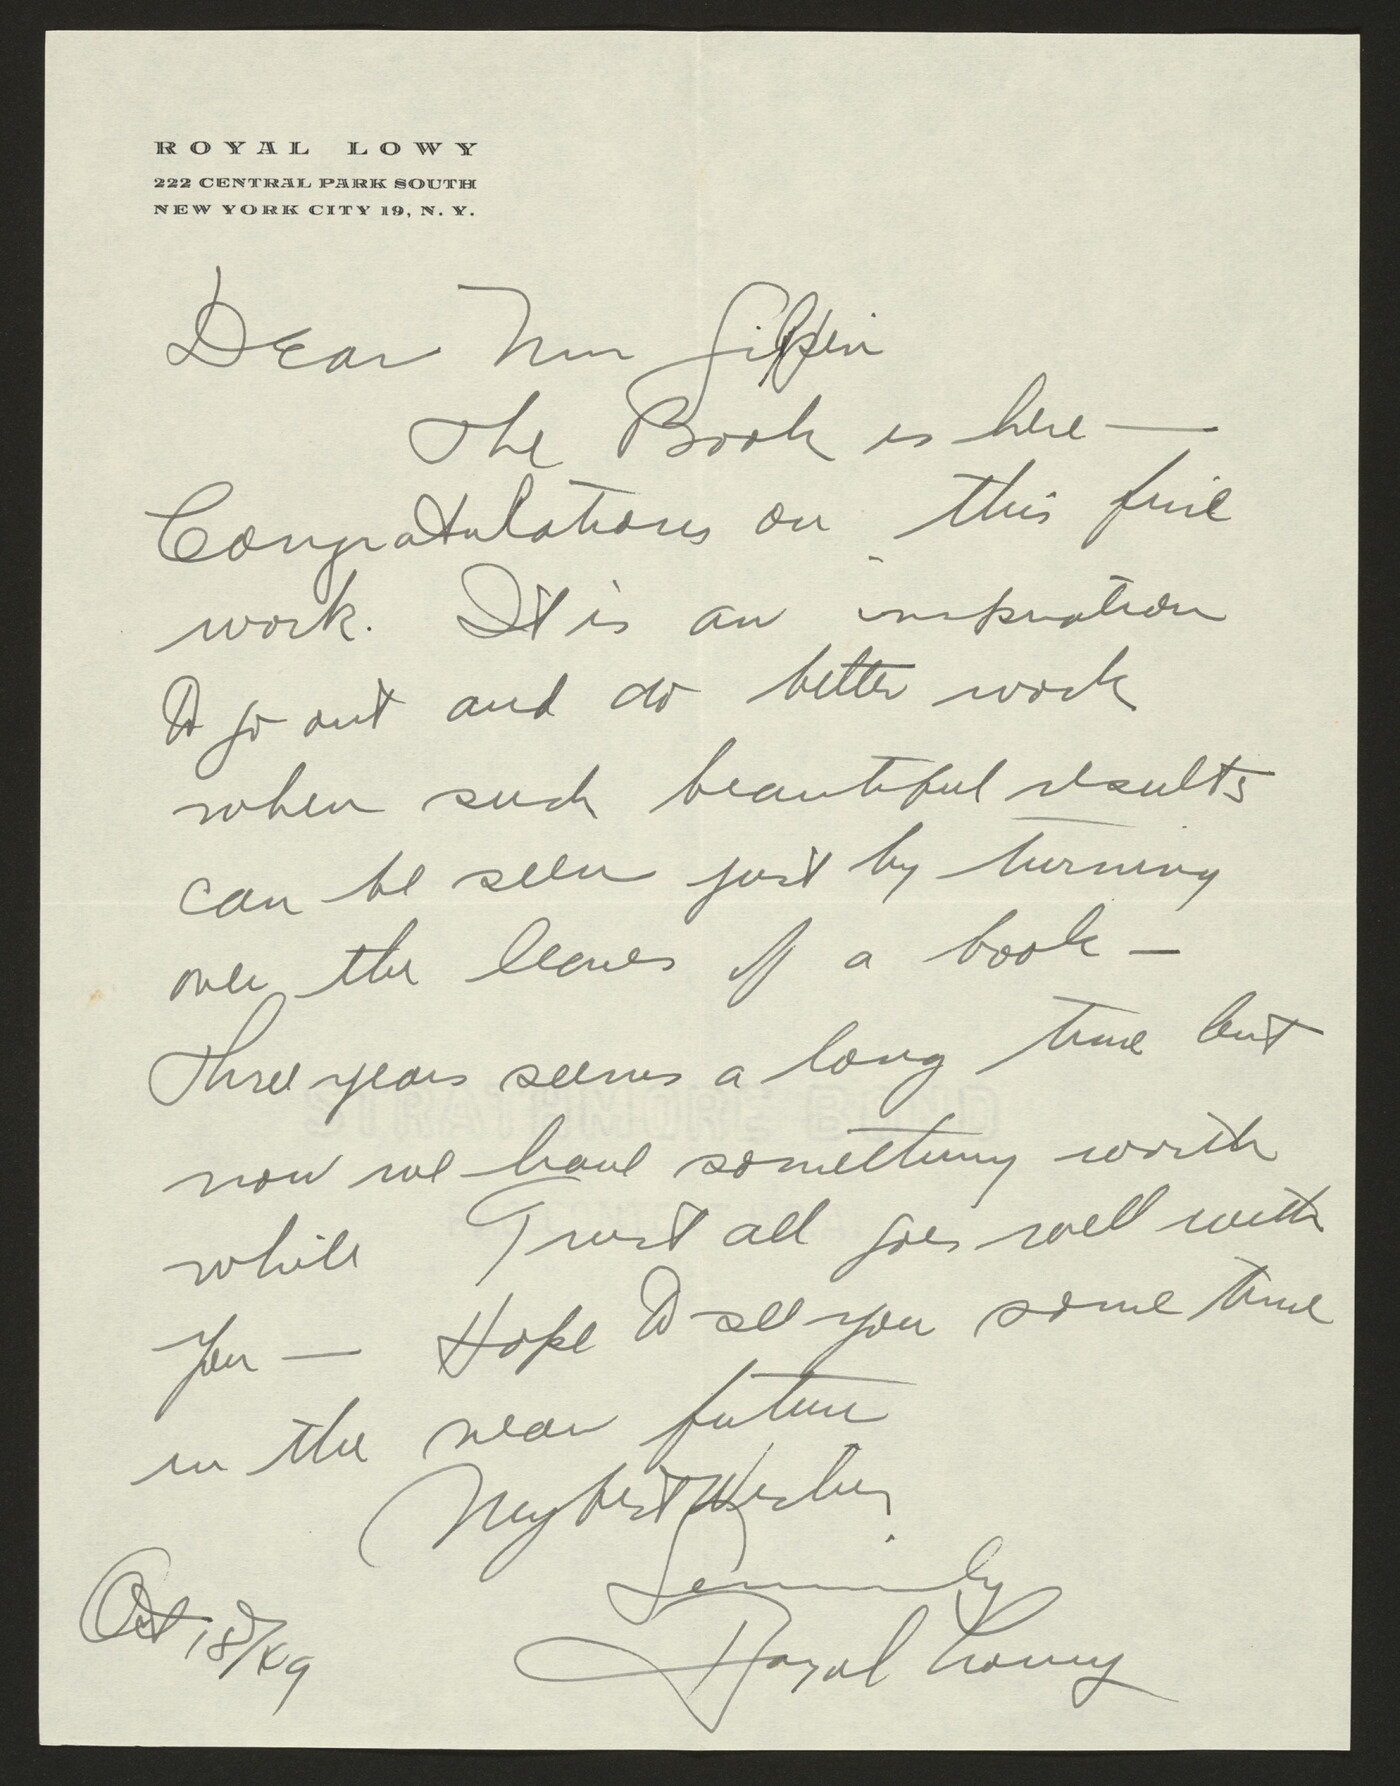 ROYAL LOWY
222 CENTRAL PARK SOUTH
NEW YORK CITY 19, N. Y.
Dear Miss Gilpin
The Book is here —
Congratulations on this fine
work. It is an inspiration
to go out and do better work
when such beautiful results
can be seen just by turning
over the leaves of a book —
Three years seems a long time but
now we have something worth
while Trust all goes well with
you — Hope to see you some time
in the near future
My best Wishes
Sincerely
Royal Lowy
Oct 18/49
STRATHMORE BOND